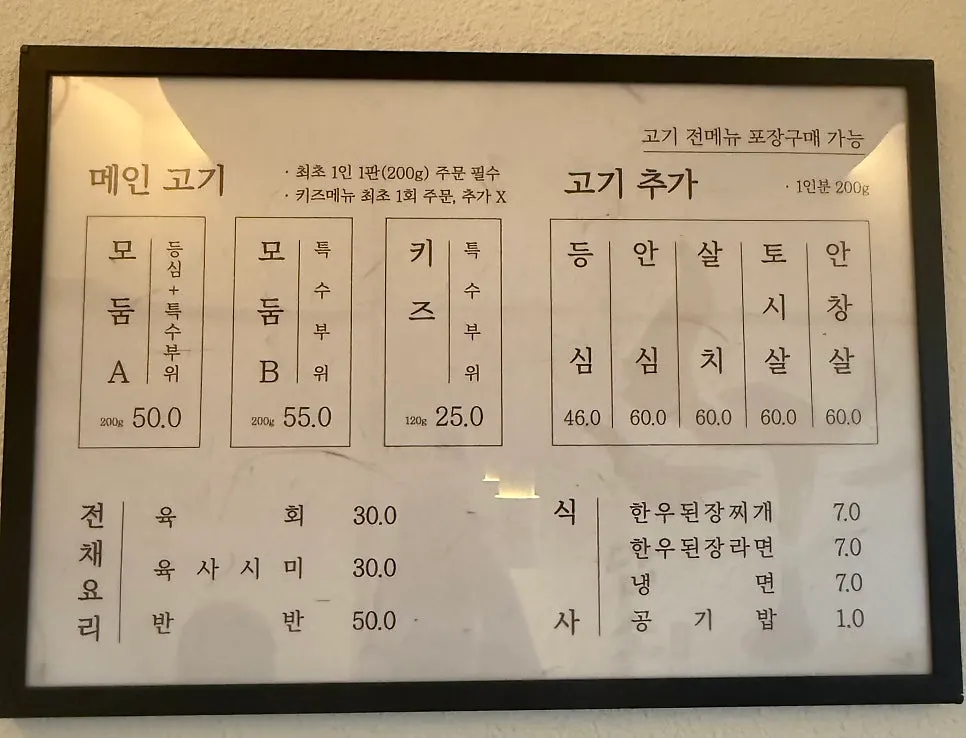 고기 전메뉴 포장구매 가능
메인 고기
· 최초 1인 1판(200g) 주문 필수
· 키즈메뉴 최초 1회 주문, 추가 X
모둠A
등심+특수부위
200g 50.0
모둠B
특수부위
200g 55.0
키즈
특수부위
120g 25.0
고기 추가
· 1인분 200g
등심
46.0
안심
60.0
살치
60.0
토시살
60.0
안창살
60.0
전채요리
육회 30.0
육사시미 30.0
반반 50.0
식사
한우된장찌개 7.0
한우된장라면 7.0
냉면 7.0
공기밥 1.0